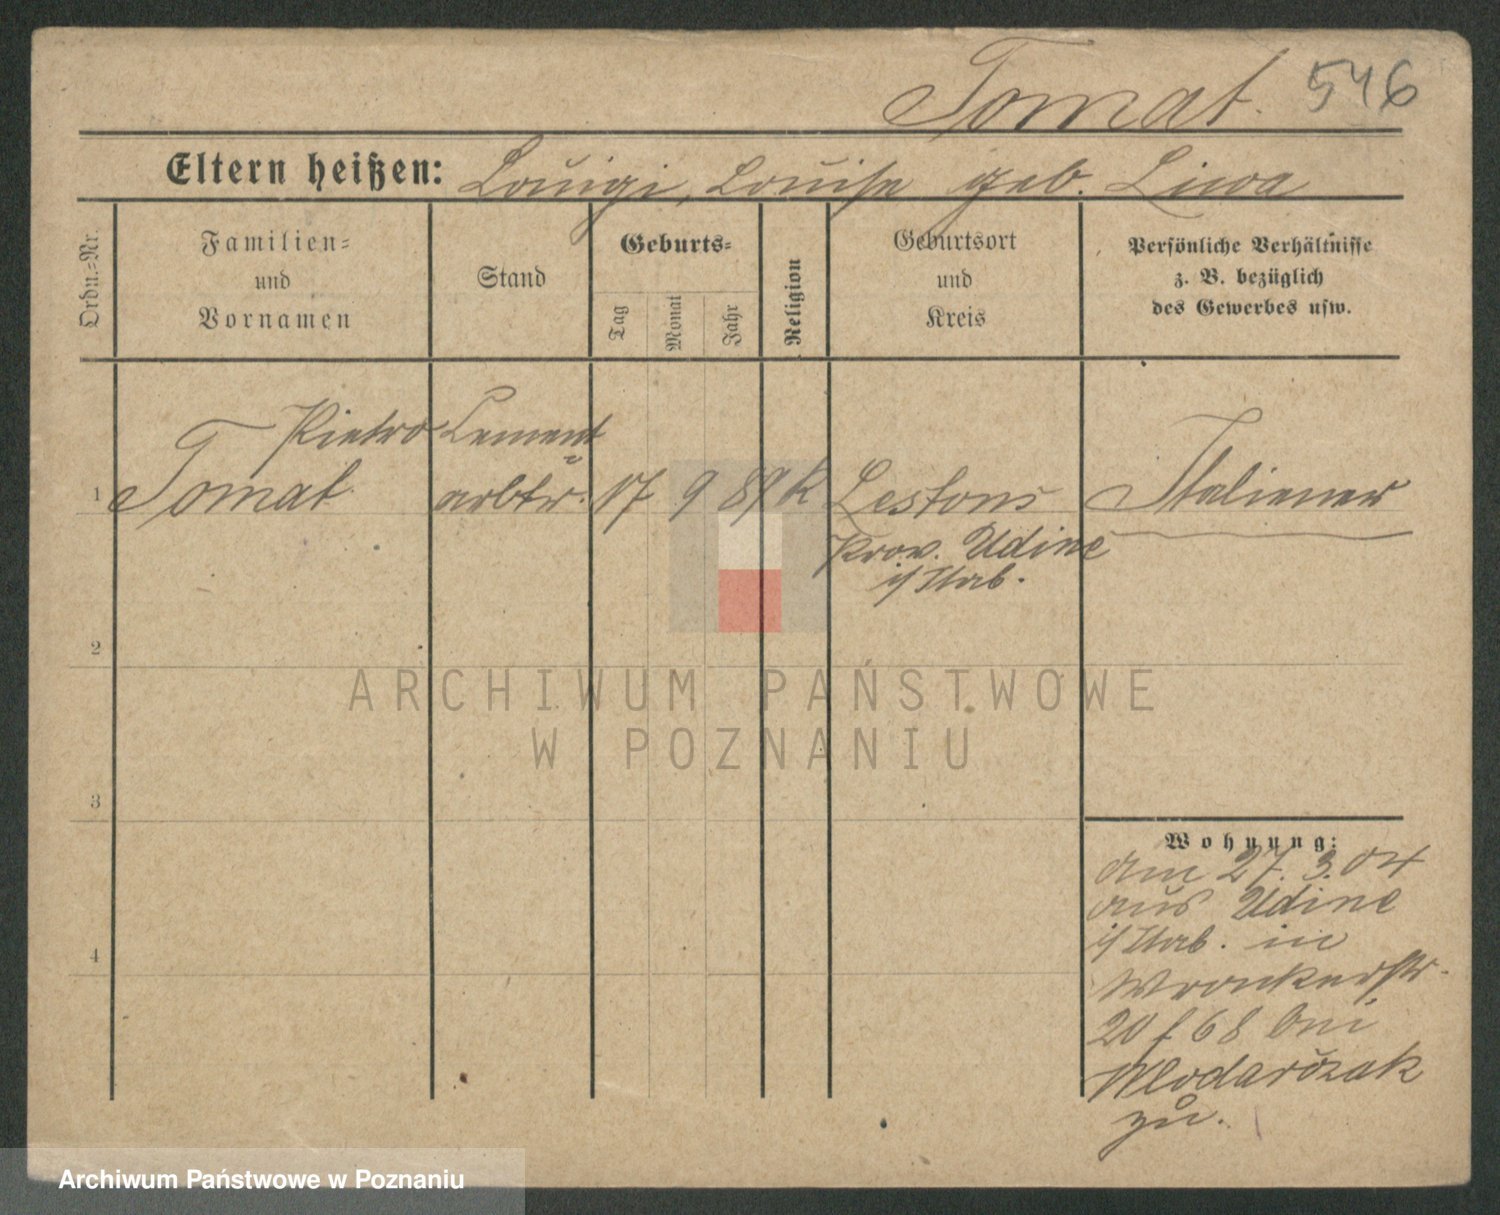 Tomat. 546
Eltern heißen: Louigi, Louise geb. Liwa
Ordn.=Nr.
Familien=
und
Vornamen
Stand
Geburts=
Tag
Monat
Jahr
Religion
Geburtsort
und
Kreis
Persönliche Verhältnisse
z. B. bezüglich
des Gewerbes usw.
Pietro Cement
1 Tomat arbtr. 17 9 89 K Lestons Italiener
Prov. Udine
i/Ital.
2
3
4
Wohnung:
am 27. 3. 04
aus Udine
i/Ital. in
Wronkerstr.
20 f 68 bei
Wlodarczak
zu.
ARCHIWUM PAŃSTWOWE
W POZNANIU
Archiwum Państwowe w Poznaniu